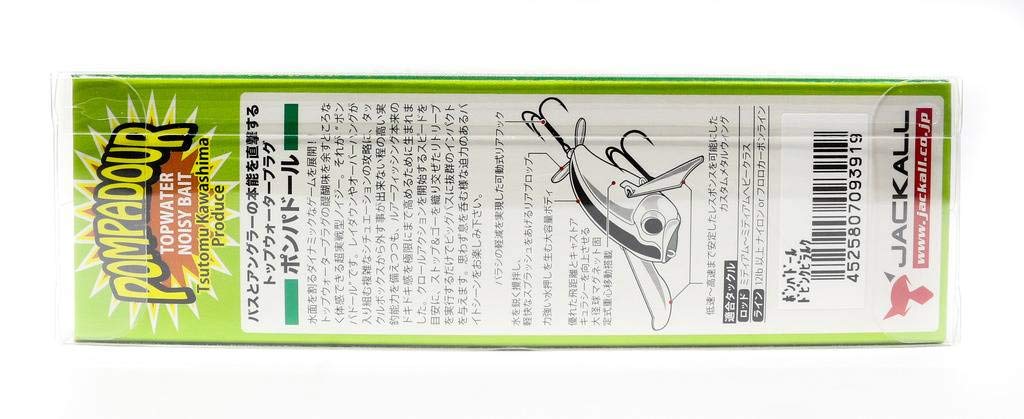 POMPADOUR
TOPWATER
NOISY BAIT
Tsutomu Kawashima
Produce
バスとアングラーの本能を直撃する
トップウォータープラグ
ポンパドール
水面を割るダイナミックなゲームを展開!
トップウォータープラグの醍醐味を余すところな
く体感できる超実戦型ノイジー。それが“ポン
パドール”です。レイダウンやオーバーハングが
入り組む複雑なシチュエーションの攻略に、タッ
クルボックスから外す事が出来ない程の高い実
釣能力を備えつつも、ルアーフィッシング本来の
ドキドキ感を極限にまで高めるために生まれま
した。クロールアクションを開始するスピードを
目安に、ストップ&ゴーを織り交ぜたリトリーブ
を実行するだけでビッグバスに抜群のインパクト
を与えます。思わず息を呑む様な迫力のあるバ
イトシーンをお楽しみ下さい。
バランの軽減を実現した可動式リアフック
水を鋭く攪拌し、
軽快なスプラッシュをあげるリアプロップ
力強い水押しを生む大容量ボディ
優れた飛距離とキャストア
キュラシーを向上させる
大径球マグネット固
定式重心移動搭載
低速～高速まで安定したレスポンスを可能にした
カスタムメタルウィング
適合タックル
ロッド ミディアム～ミディアムヘビークラス
ライン 12lb以上ナイロン or フロロカーボンライン
ポンパドール
ドピンクピラルク
4525807093919
JACKALL
www.jackall.co.jp